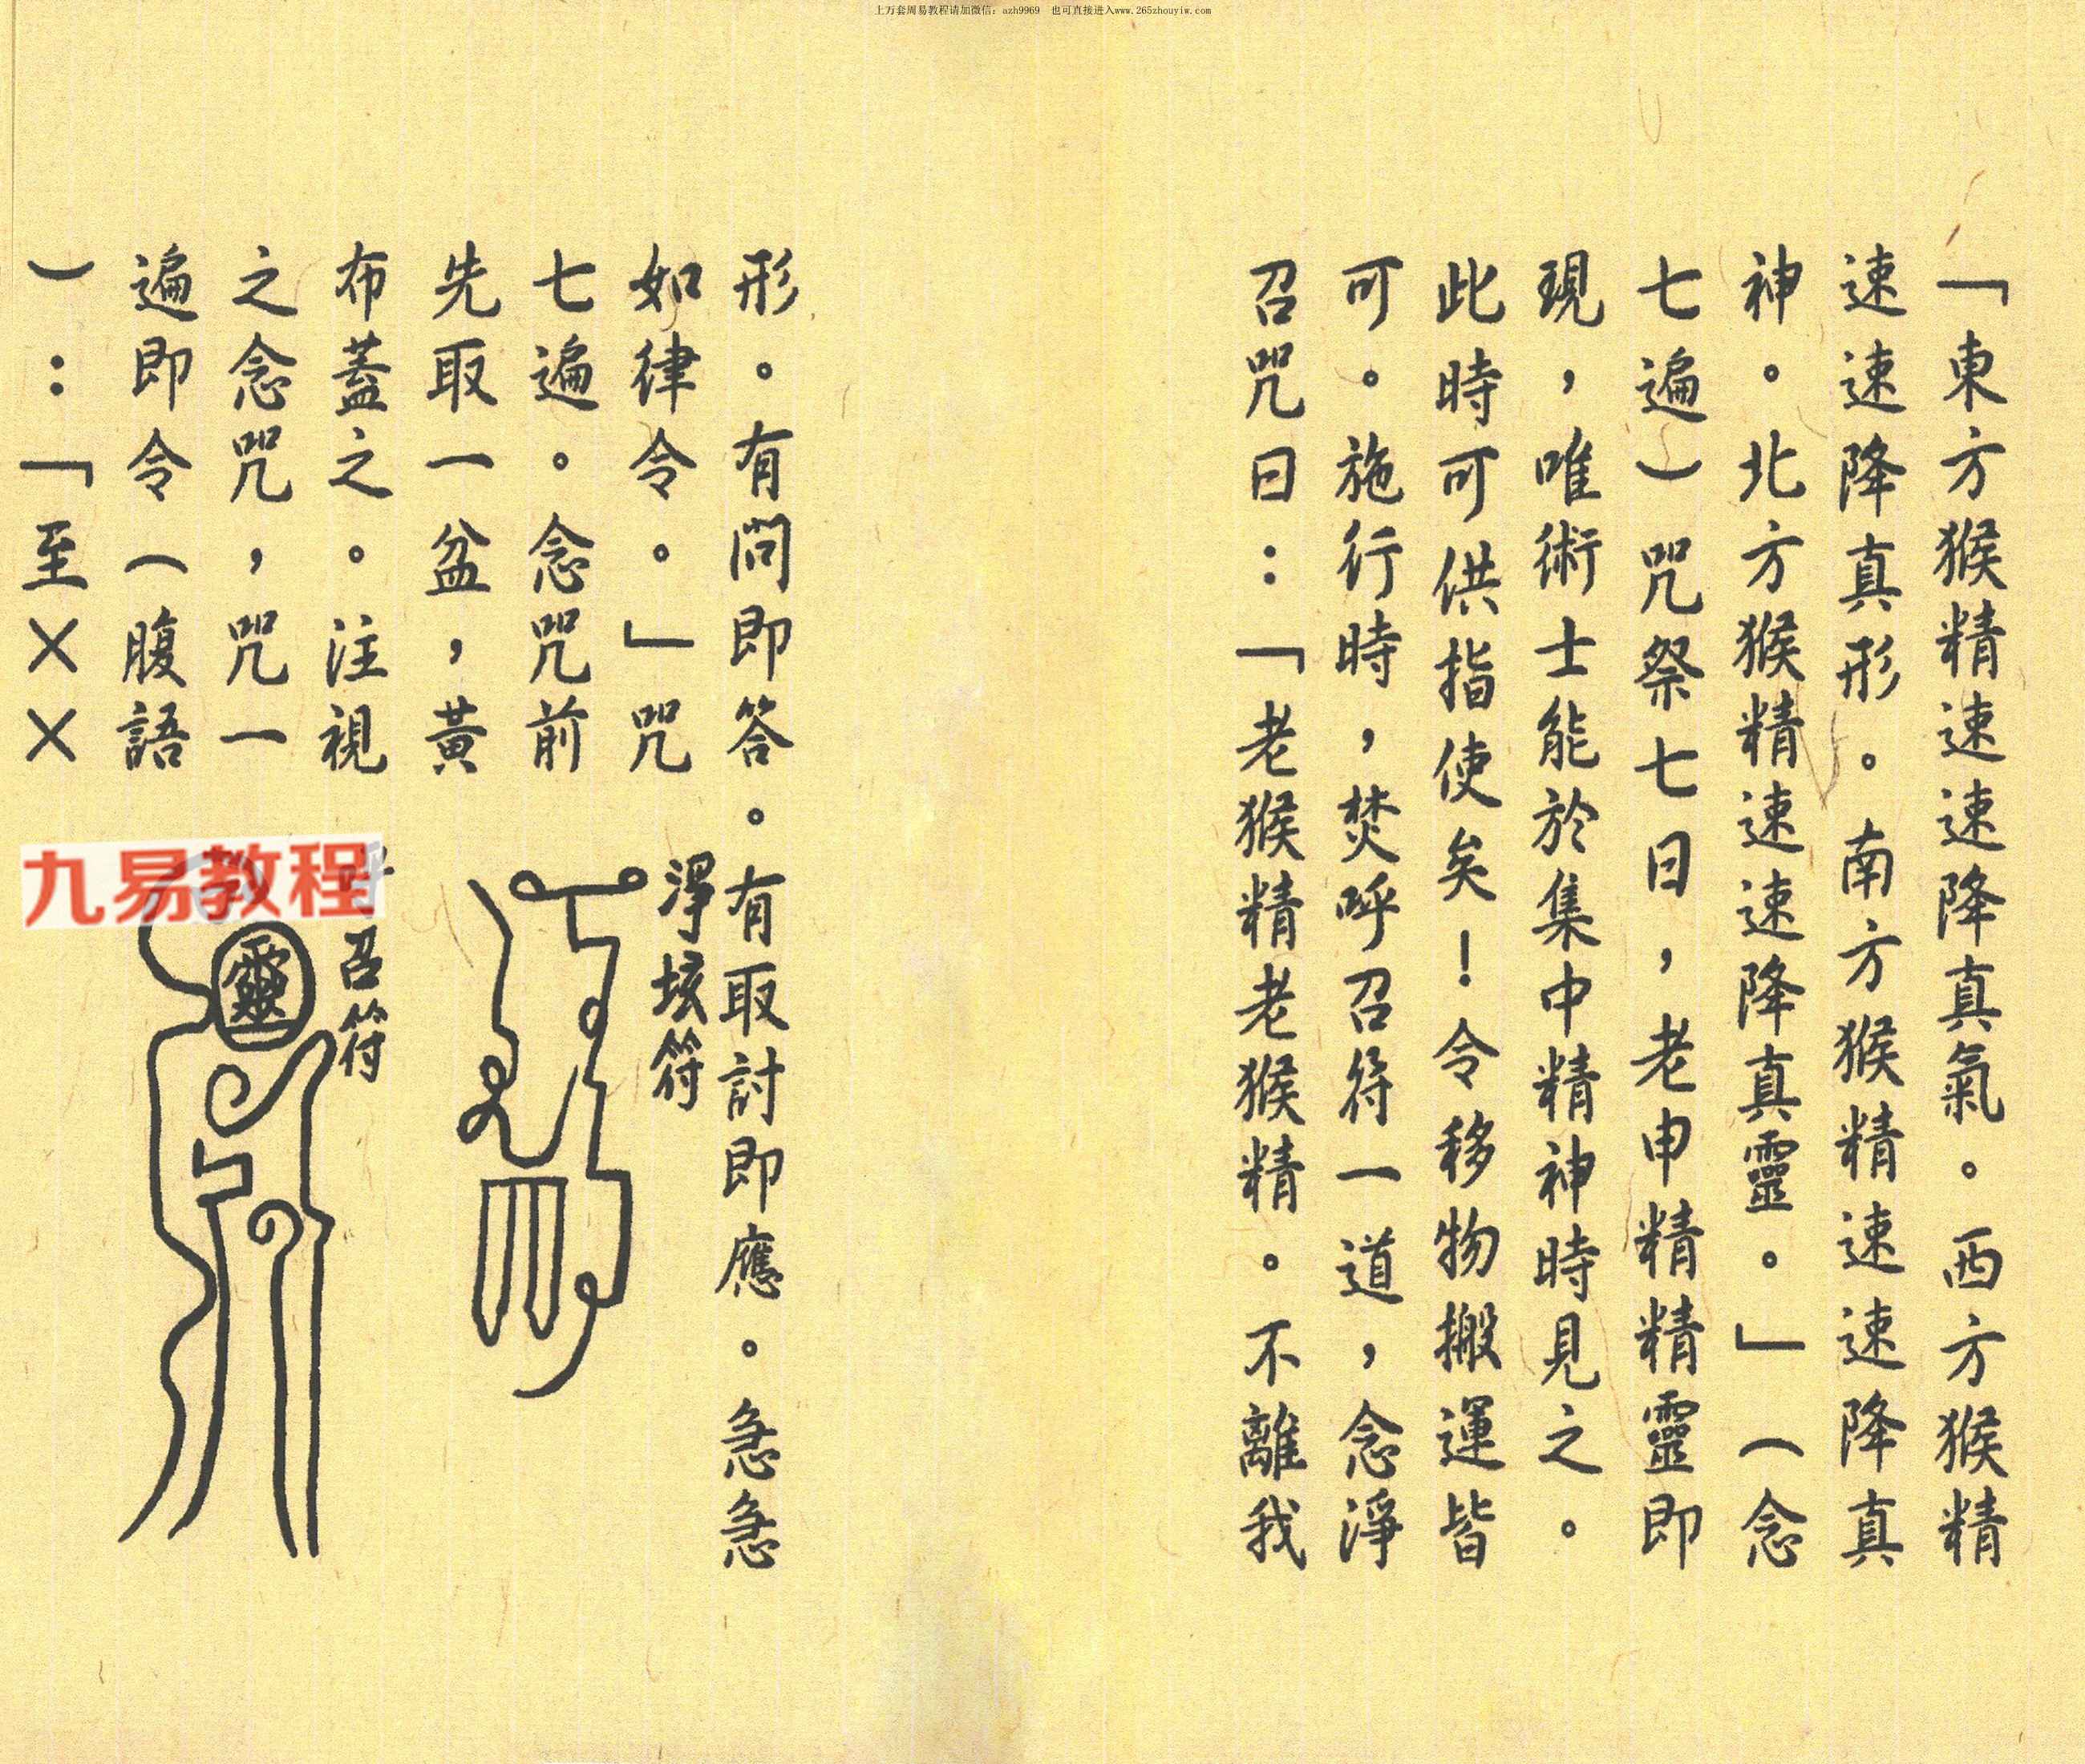 上万套周易教程请加微信：azh9969　也可直接进入www.265zhouyiw.com
「東方猴精速速降真氣。西方猴精
速速降真形。南方猴精速速降真
神。北方猴精速速降真靈。」（念
七遍）咒祭七日，老申精精靈即
現，唯術士能於集中精神時見之。
此時可供指使矣！令移物搬運皆
可。施行時，焚呼召符一道，念淨
召咒曰：「老猴精老猴精。不離我
形。有問即答。有取討即應。急急
如律令。」咒
七遍。念咒前
先取一盆，黃
布蓋之。注視
之念咒，咒一
遍即令（腹語
）：「至××
淨垓符
召符
靈
九易教程